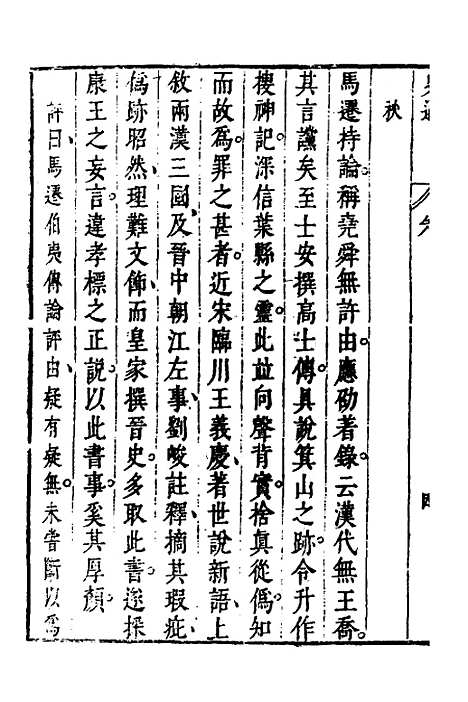 秋
馬遷持論。稱堯舜無許由。應劭著錄。云漢代無王喬。
其言讜矣至士安撰高士傳具說箕山之跡。令升作
搜神記深信葉縣之靈此並向聲背實捨眞從僞知
而故爲罪之甚者。近宋臨川王義慶著世說新語、上
敘兩漢三國及晉中朝江左事、劉峻註釋摘其瑕疵、
僞跡昭然、理難文飾、而皇家撰晉史。多取此書。遂採
康王之妄言。違孝標之正說。以此書事。奚其厚顏
評曰馬遷伯夷傳論評由、疑有疑無。未嘗斷以爲